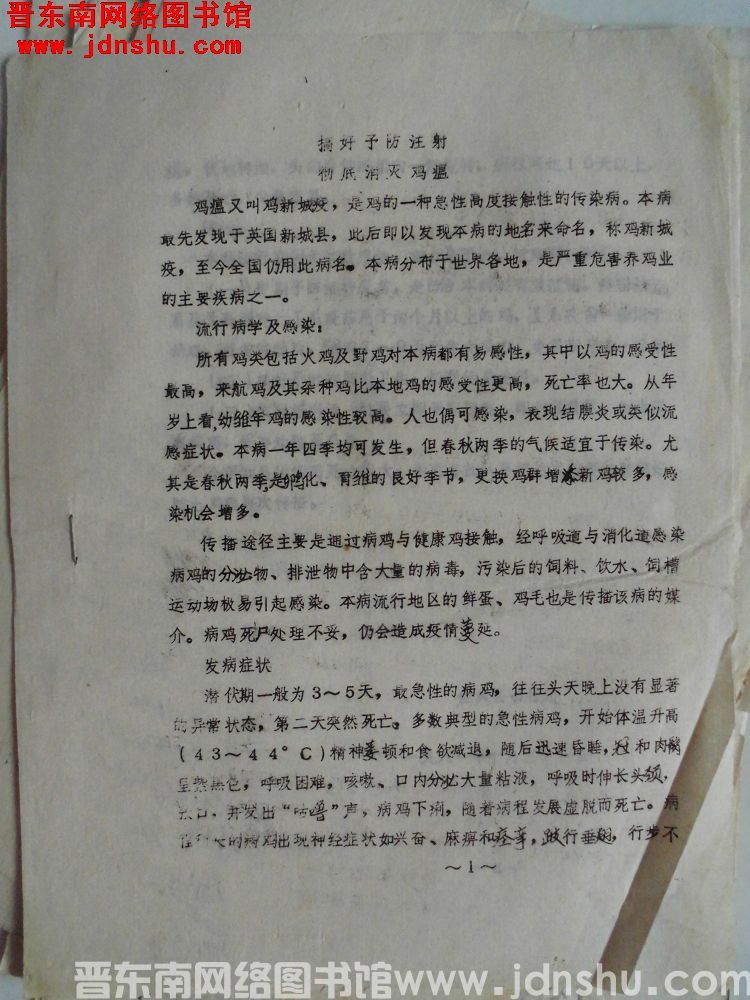 晋东南网络图书馆
www.jdnshu.com
搞好予防注射
彻底消灭鸡瘟
鸡瘟又叫鸡新城疫，是鸡的一种急性高度接触性的传染病。本病
最先发现于英国新城县，此后即以发现本病的地名来命名，称鸡新城
疫，至今全国仍用此病名。本病分布于世界各地，是严重危害养鸡业
的主要疾病之一。
流行病学及感染：
所有鸡类包括火鸡及野鸡对本病都有易感性，其中以鸡的感受性
最高，来航鸡及其杂种鸡比本地鸡的感受性更高，死亡率也大。从年
岁上看，幼雏年鸡的感染性较高。人也偶可感染，表现结膜炎或类似流
感症状。本病一年四季均可发生，但春秋两季的气候适宜于传染。尤
其是春秋两季是孵化、育雏的良好季节，更换鸡群增添新鸡较多，感
染机会增多。
传播途径主要是通过病鸡与健康鸡接触，经呼吸道与消化道感染
病鸡的分泌物、排泄物中含大量的病毒，污染后的饲料、饮水、饲槽
运动场极易引起感染。本病流行地区的鲜蛋、鸡毛也是传播该病的媒
介。病鸡死尸处理不妥，仍会造成疫情蔓延。
发病症状
潜伏期一般为3～5天，最急性的病鸡，往往头天晚上没有显著
的异常状态，第二天突然死亡。多数典型的急性病鸡，开始体温升高
（43～44°C）精神萎顿和食欲减退，随后迅速昏睡，冠和肉髯
呈紫黑色，呼吸困难，咳嗽、口内分泌大量粘液，呼吸时伸长头颈，
口，并发出“咕噜”声，病鸡下痢，随着病程发展虚脱而死亡。病
长的病鸡出现神经症状如兴奋、麻痹和痉挛，跛行垂翅，行步不
～1～
晋东南网络图书馆www.jdnshu.com